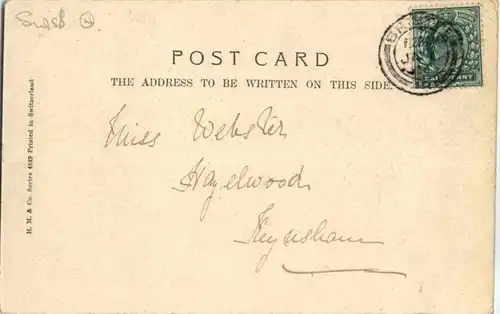 POST CARD
THE ADDRESS TO BE WRITTEN ON THIS SIDE.
Miss Webster
Hazelwood
Keynsham
H. M. & Co. Series 4549 Printed in Switzerland
HALFPENNY